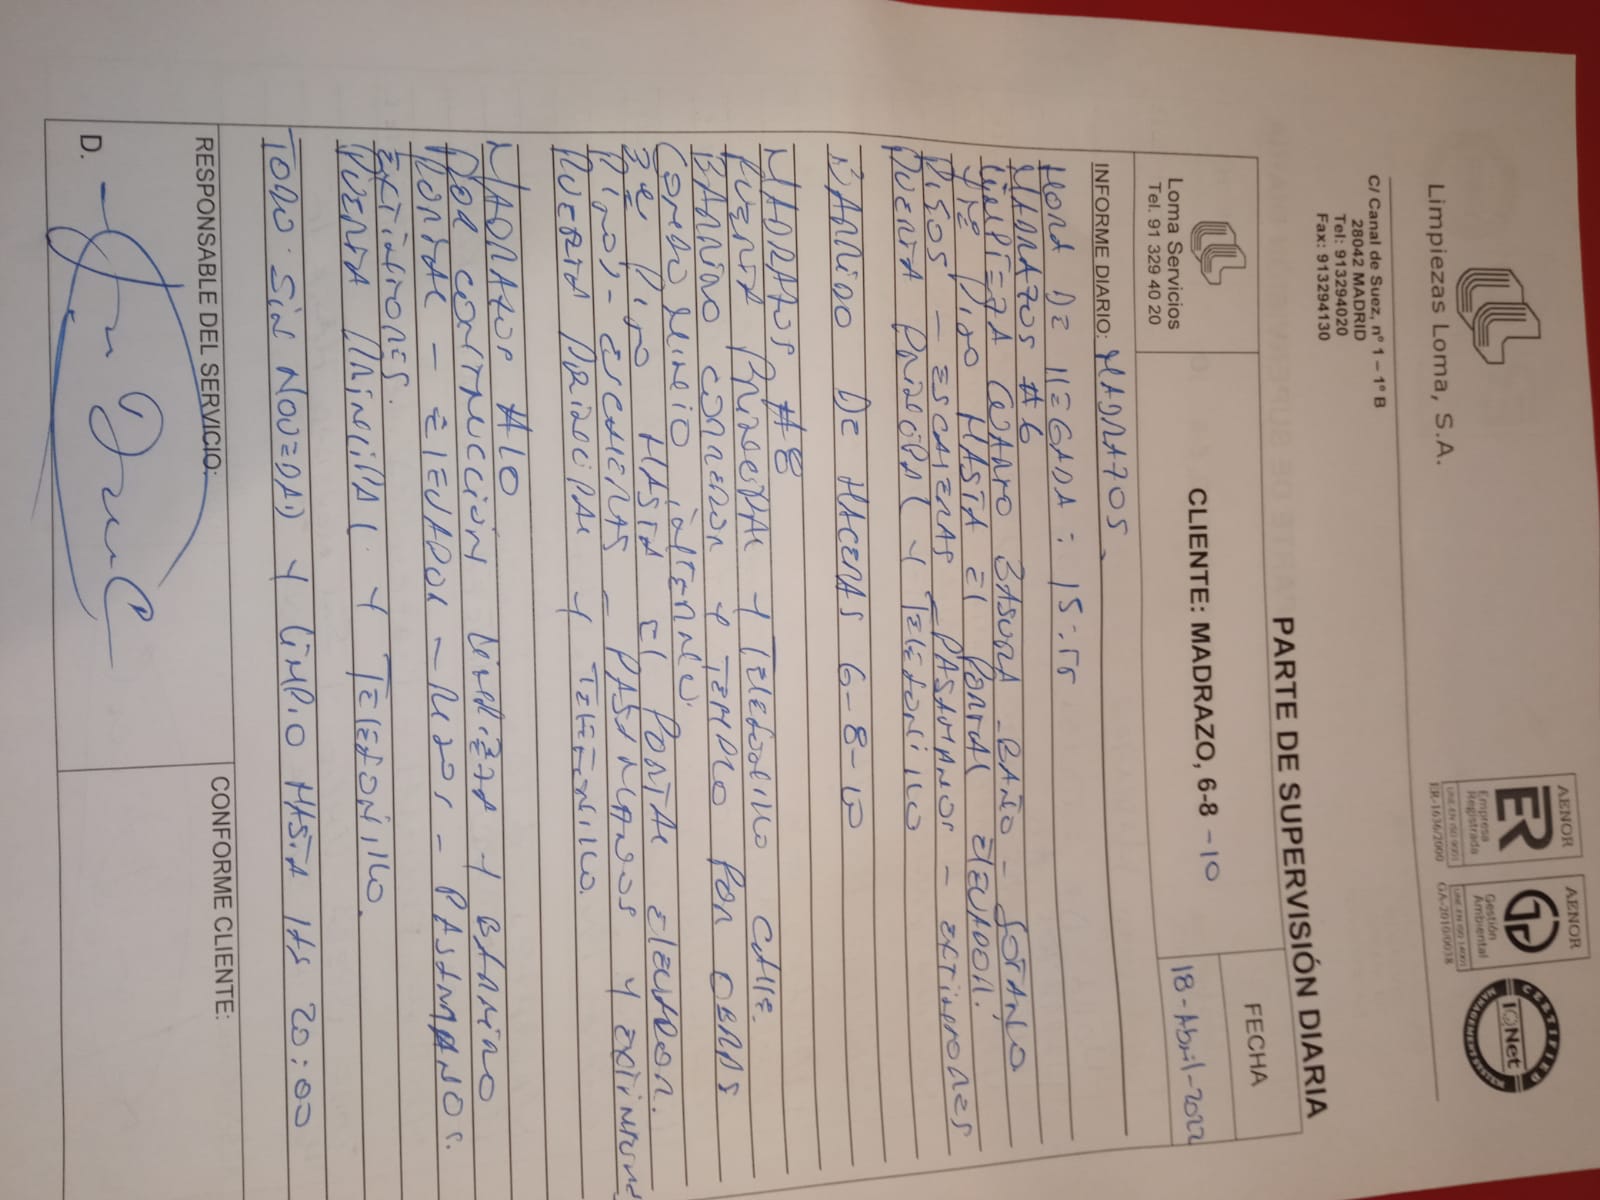 Limpiezas Loma, S.A.
C/ Canal de Suez, nº 1 – 1º B
28042 MADRID
Tel: 913294020
Fax: 913294130
AENOR
ER
Empresa
Registrada
UNE EN ISO 9001
ER-1636/2000
AENOR
Gestión
Ambiental
UNE EN ISO 14001
GA-2010/0038
CERTIFIED
IQNet
MANAGEMENT SYSTEM
PARTE DE SUPERVISIÓN DIARIA
Loma Servicios
Tel. 91 329 40 20
CLIENTE: MADRAZO, 6-8 -10
FECHA
18-Abril-2022
INFORME DIARIO: MADRAZOS.
HORA DE LLEGADA: 15:55
MADRAZOS #6
LIMPIEZA CUARTO BASURA - BAÑO - SOTANO
PISO HASTA EL PORTAL ELEVADOR.
PISOS - ESCALERAS - PASAMANOS - EXTINTORES
PUERTA PRINCIPAL Y TELEFONILLO
BARRIDO DE ACERAS 6-8-10
MADRAZOS #8
PUERTA PRINCIPAL Y TELEFONILLO CALLE.
BARRIDO CORREDOR Y TEMPLO POR OBRAS
CONDOMINIO INTERNO.
DE PISO HASTA EL PORTAL ELEVADOR.
PISOS - ESCALERAS - PASAMANOS Y EXTINTORES
PUERTA PRINCIPAL Y TELEFONILLO.
MADRAZOS #10
POR CONSTRUCCIÓN LIMPIEZA Y BARRIDO
PORTAL - ELEVADOR - PISOS - PASAMANOS.
EXTINTORES.
PUERTA PRINCIPAL Y TELEFONILLO.
TODO SIN NOVEDAD Y LIMPIO HASTA LAS 20:00
RESPONSABLE DEL SERVICIO:
CONFORME CLIENTE:
D.